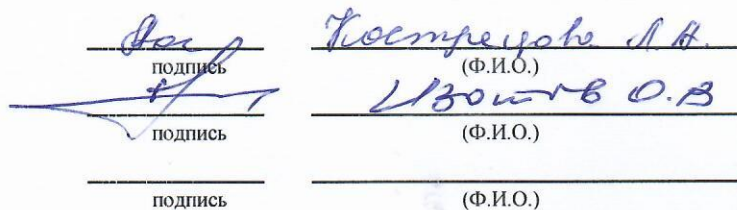 Кострецова Л.Н.
подпись (Ф.И.О.)
Изотов О.В
подпись (Ф.И.О.)
подпись (Ф.И.О.)